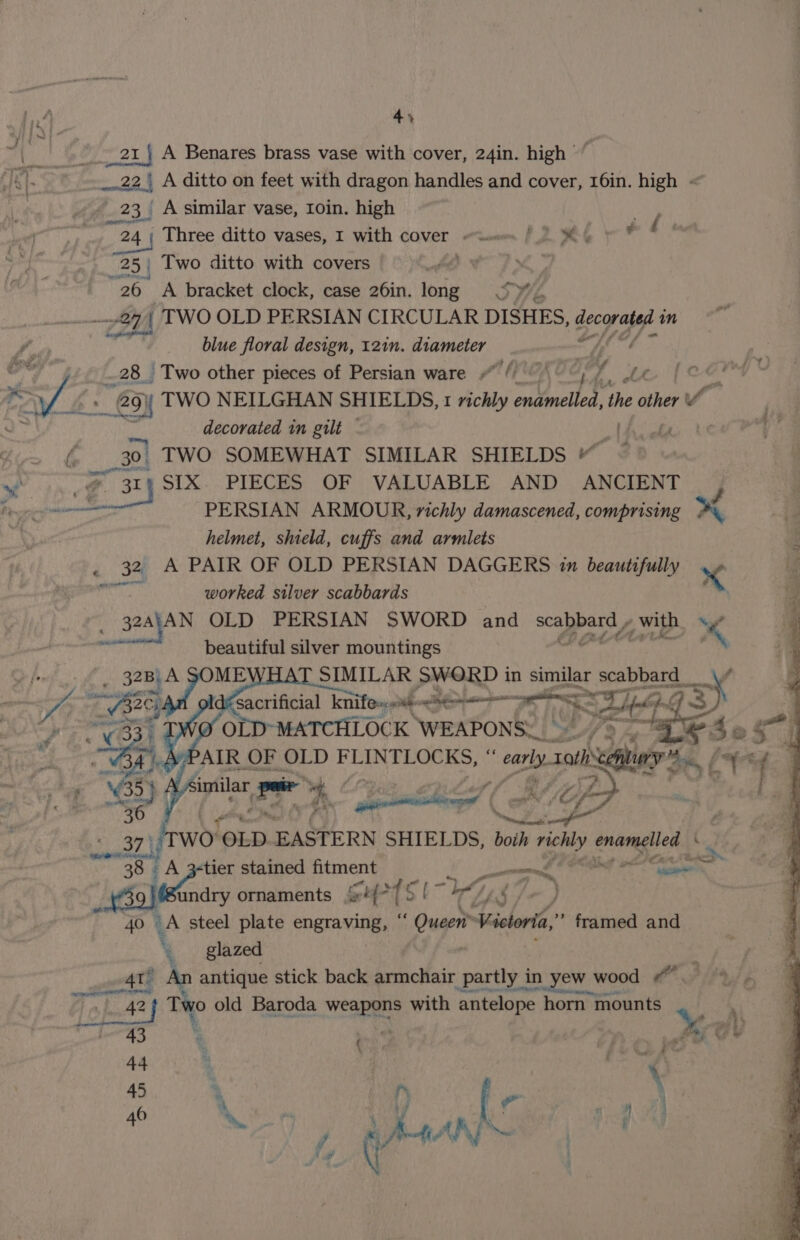 4
21 A Benares brass vase with cover, 24in. high
22 A ditto on feet with dragon handles and cover, 16in. high
23 A similar vase, 10in. high
24 Three ditto vases, 1 with cover
25 Two ditto with covers
26 A bracket clock, case 26in. long
27 TWO OLD PERSIAN CIRCULAR DISHES, decorated in
blue floral design, 12in. diameter
28 Two other pieces of Persian ware
29 TWO NEILGHAN SHIELDS, 1 richly enamelled, the other
decorated in gilt
30 TWO SOMEWHAT SIMILAR SHIELDS
31 SIX PIECES OF VALUABLE AND ANCIENT
PERSIAN ARMOUR, richly damascened, comprising
helmet, shield, cuffs and armlets
32 A PAIR OF OLD PERSIAN DAGGERS in beautifully
worked silver scabbards
32A AN OLD PERSIAN SWORD and scabbard, with
beautiful silver mountings
32B A SOMEWHAT SIMILAR SWORD in similar scabbard
32C An old sacrificial knife
33 TWO OLD MATCHLOCK WEAPONS
34 A PAIR OF OLD FLINTLOCKS, “ early 19th century ”
35 A similar pair
36
37 TWO OLD EASTERN SHIELDS, both richly enamelled
38 A 3-tier stained fitment
39 Sundry ornaments
40 A steel plate engraving, “ Queen Victoria,” framed and
glazed
41 An antique stick back armchair partly in yew wood
42 Two old Baroda weapons with antelope horn mounts
43
44
45
46